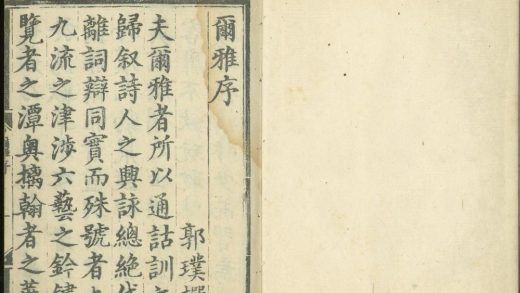 爾雅序
郭璞
夫爾雅者所以通詁訓之
歸叙詩人之興詠總絶代
離詞辯同實而殊號者
九流之津涉六藝之鈐鍵
覽者之潭奥摛翰者之華